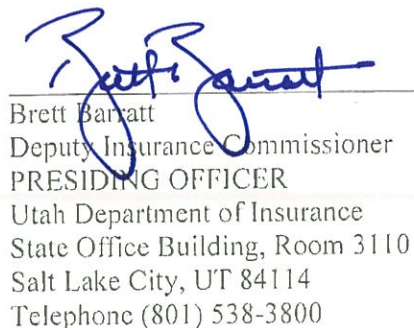 Brett Barratt
Brett Barratt
Deputy Insurance Commissioner
PRESIDING OFFICER
Utah Department of Insurance
State Office Building, Room 3110
Salt Lake City, UT 84114
Telephone (801) 538-3800